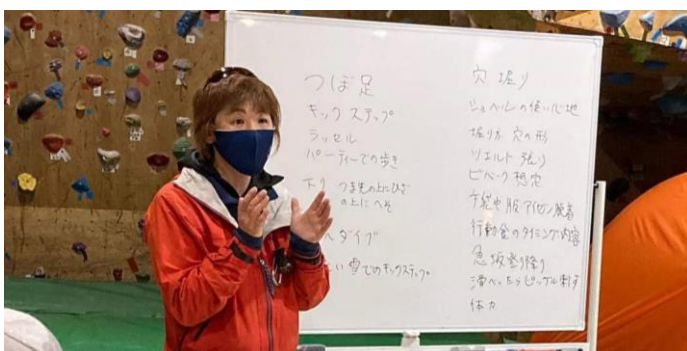 つぼ足
キックステップ
ラッセル
パーティーでの歩き
下り つま先の上にひざ
の上にへそ
ヘダイブ
い雪でのキックステップ
穴堀り
ショベルの使い心地
堀り方 穴の形
ツェルト張り
ビバーク想定
手袋 アイゼン脱着
行動食のタイミング、内容
急坂登り降り
滑べったらピッケル刺す
体力